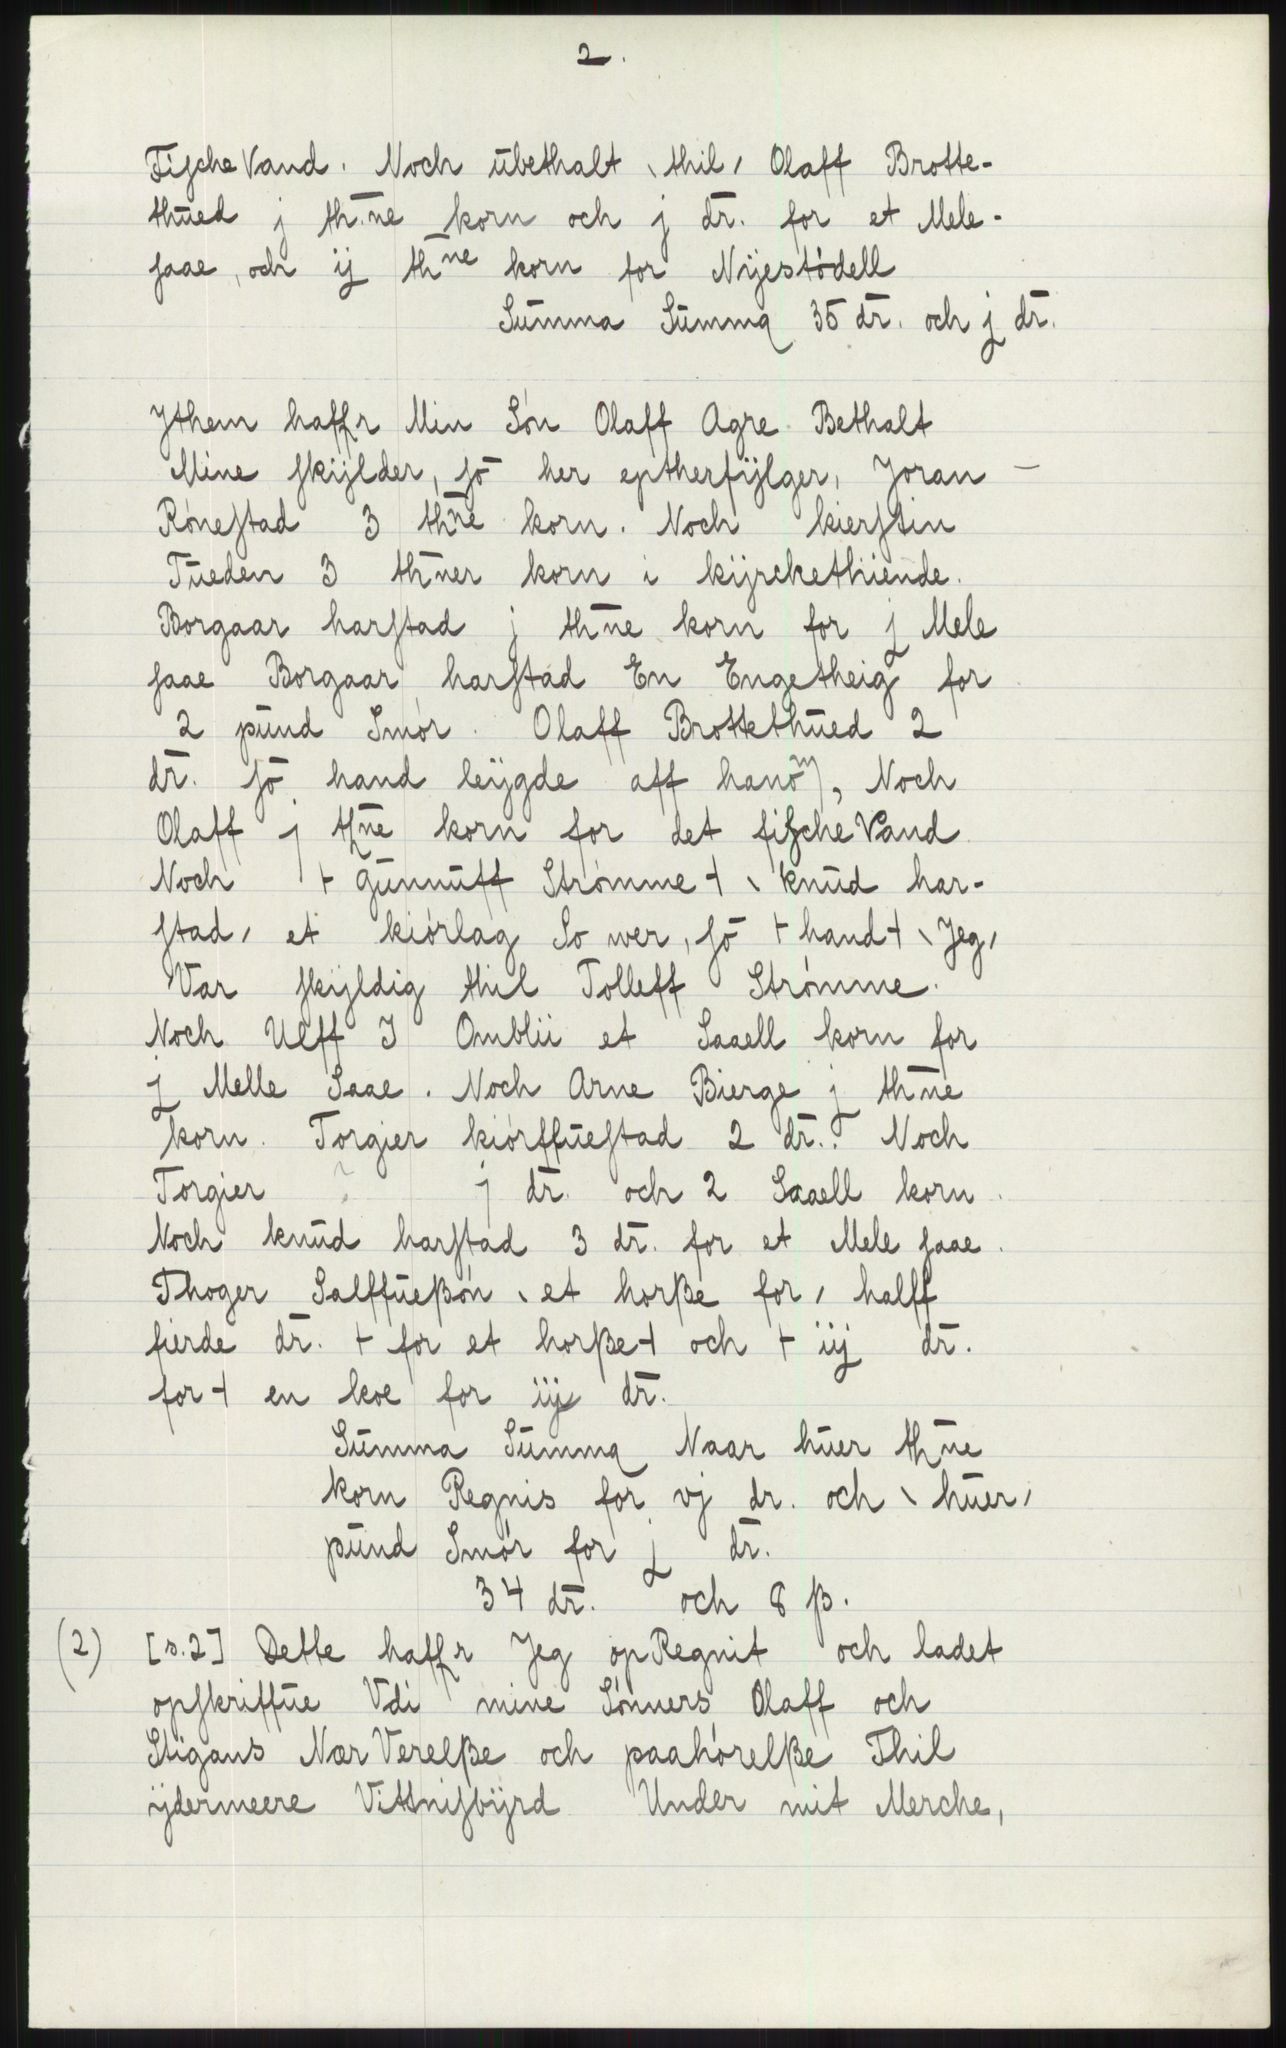 2.
Fische Vand. Noch ŭbethalt \ thil / Olaff Brotte-
thŭed j th̄ne korn och j dr̄. for et Mele-
saae, och ij th̄ne korn for Nijestòdell
Sŭmma Sŭmma 35 dr̄. och j dr̄.
Ythem haffr Min Sòn Olaff Agre Bethalt
Mine skijlder, sō her eptherfijlger, Joran –
Ròneſtad 3 th̄ne korn. Noch kierſtin
Tŭeden 3 th̄ner korn i kijrckethiende.
Borgaar harſtad j th̄ne korn for j Mele
saae Borgaar harſtad En Engetheig for
2 pŭnd Smòr. Olaff Brottethŭed 2
dr̄. sō hand leijgde aff hanom, Noch
Olaff j th̄ne korn for det fiſche Vand
Noch ⊢ Gŭnnŭff Stròmme ⊣ \ knŭd har-
ſtad / et kiòrlag So wer, sō ⊢ hand ⊣ \ Jeg /
Var skijldig thil Tolleff Stròmme.
Noch Ulff I Omblii et Saaell korn for
j Melle Saae. Noch Arne Bierge j th̄ne
korn. Torgier kiòrffŭeſtad 2 dr̄.. Noch
Torgier ? j dr̄. och 2 Saaell korn.
Noch knŭd harſtad 3 dr̄. for et Mele saae.
Thoger Salffŭeßòn \ et horße for / halff
fierde dr̄. ⊢ for et horße ⊣ och ⊢ iij dr̄.
for ⊣ en koe for iij dr̄.
Sŭmma Sŭmma Naar hŭer th̄ne
korn Regnis for vj dr. och \ hŭer /
pŭnd Smòr for j dr̄.
34 dr̄. och 8 ß.
(2) [s.2] Dette haffr Jeg opRegnit och ladet
opſkriffŭe Vdi mine Sònners Olaff och
Stigans Nær Verelße och paahòrelße Thil
ijdermeere Vittniſbijrd Under mit Merche,